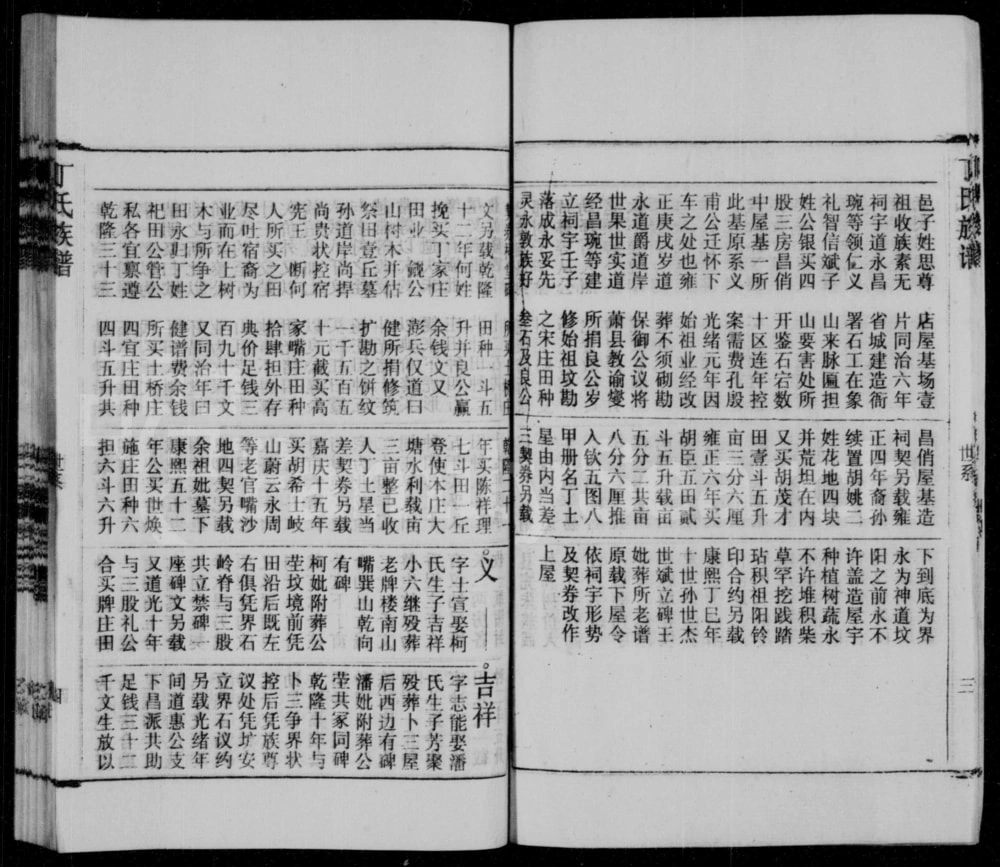 丁氏族谱
世系
三
邑子姓思尊
祖收族素无
祠宇道永昌
琬等领仁义
礼智信斌子
姓公银买四
股三房昌俏
中屋基一所
此基原系义
甫公迁怀下
车之处也雍
正庚戌岁道
永道爵道岸
世果世实道
经昌琬等建
立祠宇壬子
落成永妥先
灵永敦族好
店屋基场壹
片同治六年
省城建造衙
署石工在象
山来脉匾担
山要害处所
开鉴石宕数
十区连年控
案需费孔殷
光绪元年因
始祖业经改
葬不须砌勘
保御公议将
萧县教谕燮
所捐良公岁
修始祖坟勘
之宋庄田种
叁石及良公
昌俏屋基造
祠契另载雍
正四年裔孙
续置胡姚二
姓花地四块
并荒坦在内
又买胡茂才
田壹斗五升
亩三分六厘
雍正六年买
胡臣五田贰
斗五升载亩
五分二共亩
八分六厘推
入钦五图八
甲册名丁土
星由内当差
三契券另载
下到底为界
永为神道坟
阳之前永不
许盖造屋宇
种植树蔬永
不许堆积柴
草罕挖践踏
玷积祖阳铃
印合约另载
康熙丁巳年
十世孙世杰
世斌立碑王
妣葬所老谱
原载下屋令
依祠宇形势
及契券改作
上屋
文另载乾隆
十二年何姓
挽买丁家庄
田业 饶公
山树木并估
祭田壹丘墓
孙道岸尚捍
尚贵状控宿
宪王 断何
人所买之田
尽吐宿裔为
业而在上树
木与所争之
田永归丁姓
祀田公管公
私各宜禀遵
乾隆三十三
田种一斗五
升并良公赢
余钱文又
澎兵仅道曰
健所捐修筑
扩勘之饼纹
一千五百五
十元截买高
家嘴庄田种
拾肆担外存
典价足钱三
百九十千文
又同治年曰
健谱费余钱
所买土桥庄
四宜庄田种
四斗五升共
年买陈祥理
七斗田一丘
登使本庄大
塘水利载南
三亩整已收
人丁土星当
差契券另载
嘉庆十五年
买胡希士岐
山蔚云永周
等老官嘴沙
地四契另载
余祖妣墓下
康熙五十二
年公买世焕
施庄田种六
担六斗六升
义
字士宣娶柯
氏生子吉祥
小六继殁葬
老牌楼南山
嘴巽山乾向
有碑
柯妣附葬公
茔坟境前凭
田沿后既左
右俱凭界石
岭脊与三股
共立禁碑
座碑文另载
又道光十年
与三股礼公
合买牌庄田
吉祥
字志能娶潘
氏生子芳聚
殁葬卜三屋
后西边有碑
潘妣附葬公
茔共冢同碑
乾隆十年与
卜三争界状
控后凭族尊
议处凭圹安
立界石议约
另载光绪年
间道惠公支
下昌派共助
足钱三十二
千文生放以
丁氏族谱
世系
四